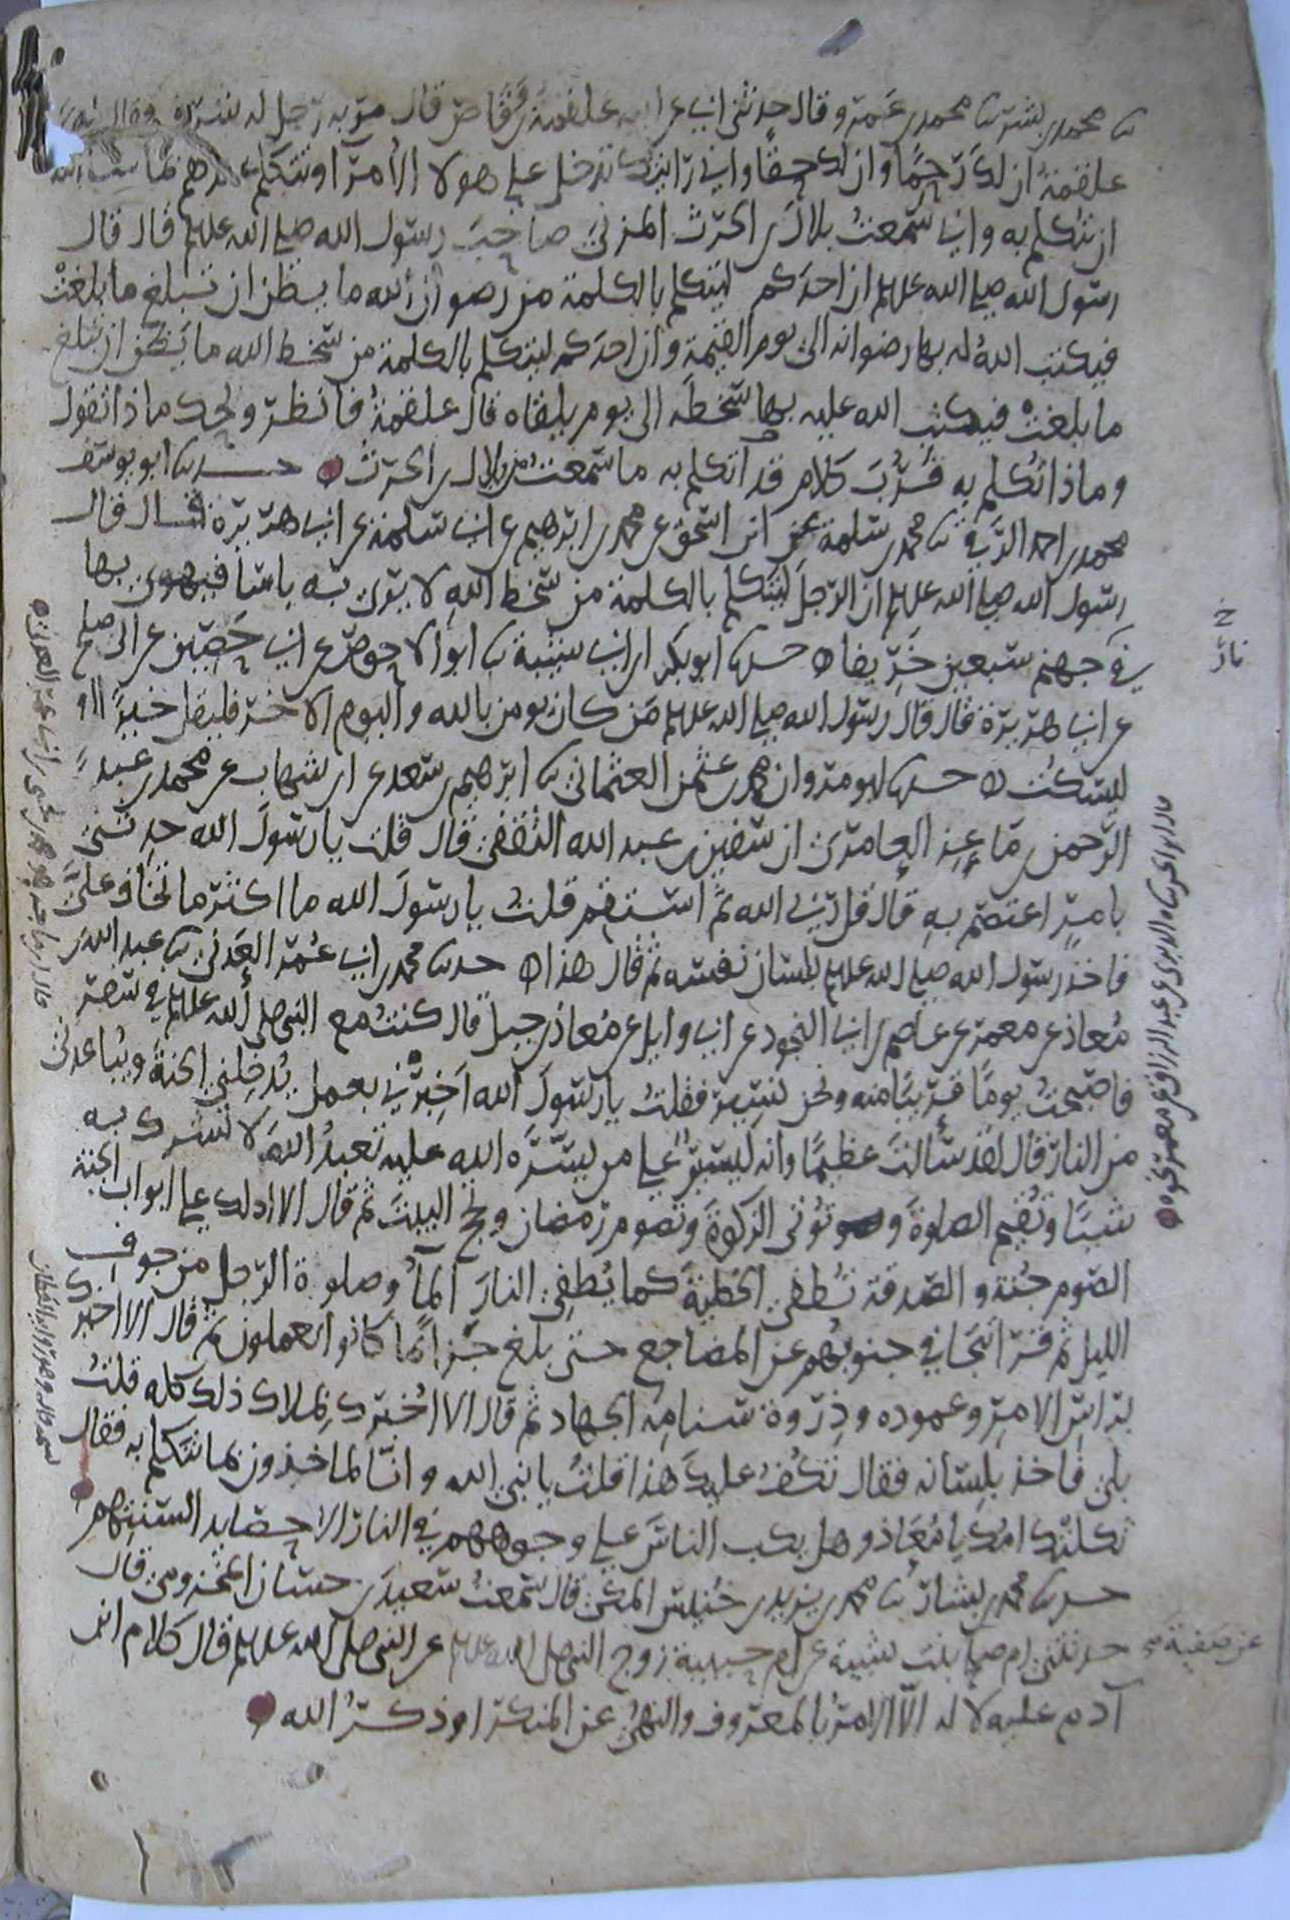 ثنا محمد بن بشر ثنا محمد بن عمرو قال حدثني ابي عن ابيه علقمة بن وقاص قال مر به رجل له شرف فقال له
علقمة ان لك رحما وان لك حقا واني رايتك تدخل على هولا الأمرآ وتتكلم عندهم بما شا الله
ان تتكلم به واني سمعت بلال بن الحرث المزني صاحب رسول الله صلى الله عليه قال قال
رسول الله صلى الله عليه ان احدكم ليتكلم بالكلمة من رضوان الله ما يظن ان تبلغ ما بلغت
فيكتب الله له بها رضوانه الى يوم القيمة وان احدكم ليتكلم بالكلمة من سخط الله ما يظن ان تبلغ
ما بلغت فيكتب الله عليه بها سخطه الى يوم يلقاه قال علقمة فانظر ويحك ماذا تقول
وماذا تكلم به فرب كلام قد اتكلم به ما سمعت من بلال بن الحرث حدثنا ابو يوسف
محمد بن احمد الرقي ثنا محمد بن سلمة عن ابن اسحق عن محمد بن ابرهيم عن ابي سلمة عن ابي هريرة قال قال
رسول الله صلى الله عليه ان الرجل ليتكلم بالكلمة من سخط الله لا يرى به باسا فيهوي بها
في جهنم سبعين خريفا حدثنا ابو بكر ابن ابي شيبة ثنا ابو الاحوص عن ابي حصين عن ابي صلح
عن ابي هريرة قال قال رسول الله صلى الله عليه من كان يومن بالله واليوم الاخر فليقل خيرا او
ليسكت حدثنا ابو مروان محمد بن عثمن العثماني ثنا ابرهيم بن سعد عن ابن شهاب عن محمد بن عبد
الرحمن بن ماعز العامري ان سفين بن عبد الله الثقفي قال قلت يا رسول الله حدثني
بامر اعتصم به قال قل ربي الله ثم استقم قلت يا رسول الله ما اكثر ما تخاف علي
فاخذ رسول الله صلى الله عليه بلسان نفسه ثم قال هذا حدثنا محمد بن ابي عمر العدني ثنا عبد الله بن
معاذ عن معمر عن عاصم بن ابي النجود عن ابي وايل عن معاذ بن جبل قال كنت مع النبي صلى الله عليه في سفر
فاصبحت يوما قريبا منه ونحن نسير فقلت يا رسول الله اخبرني بعمل يدخلني الجنة ويباعدني
من النار قال لقد سالت عظيما وانه ليسير على من يسره الله عليه تعبد الله لا تشرك به
شيئا وتقيم الصلوة وتؤتي الزكوة وتصوم رمضان وتحج البيت ثم قال الا ادلك على ابواب الجنة
الصوم جنة والصدقة تطفي الخطية كما يطفي النار المآ وصلوة الرجل من جوف
الليل ثم قرا تتجافى جنوبهم عن المضاجع حتى بلغ جزا بما كانوا يعملون ثم قال الا اخبرك
براس الامر وعموده وذروة سنامه الجهاد ثم قال الا اخبرك بملاك ذلك كله قلت
بلى فاخذ بلسانه فقال تكف عليك هذا قلت يا نبي الله وانا لماخذون بما نتكلم به فقال
ثكلتك امك يا معاذ وهل يكب الناس على وجوههم في النار الا حصايد السنتهم
حدثنا محمد بن بشار ثنا محمد بن يزيد بن خنيس المكي قال سمعت سعيد بن حسان المخزومي قال
حدثتني ام صلح بنت شيبة عن ام حبيبة زوج النبي صلى الله عليه عن النبي صلى الله عليه قال كلام ابن
عن صفية صح
آدم عليه لا له الا الامر بالمعروف والنهي عن المنكر او ذكر الله
خ
نار